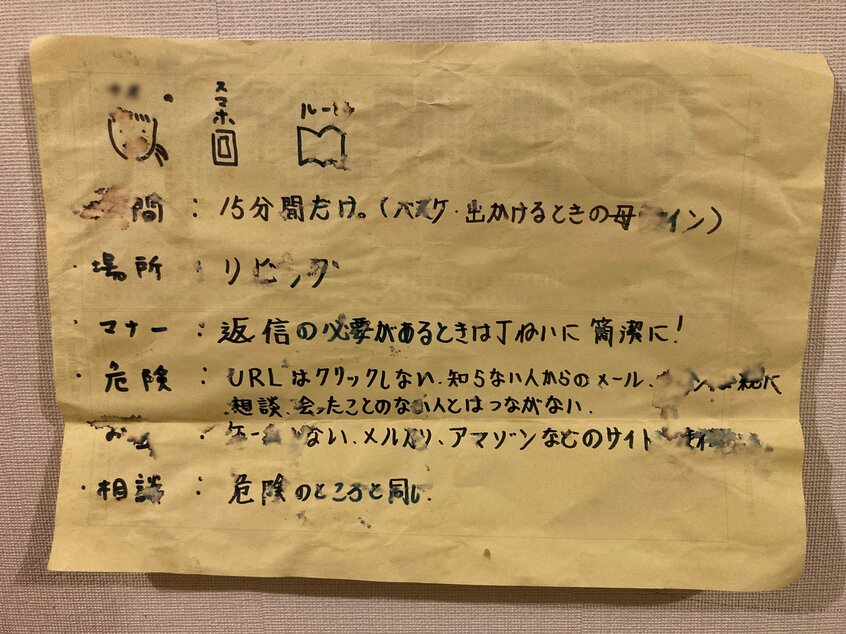 スマホ
間：15分間だけ。（バスケ・出かけるときの母
・場所：リビング
・マナー：返信の必要があるときは丁ねいに簡潔に！
・危険：URLはクリックしない、知らない人からのメール、
相談、会ったことのない人とはつながない.
ない、メルカリ、アマゾンなどのサイト
・相談：危険のところと同じ.